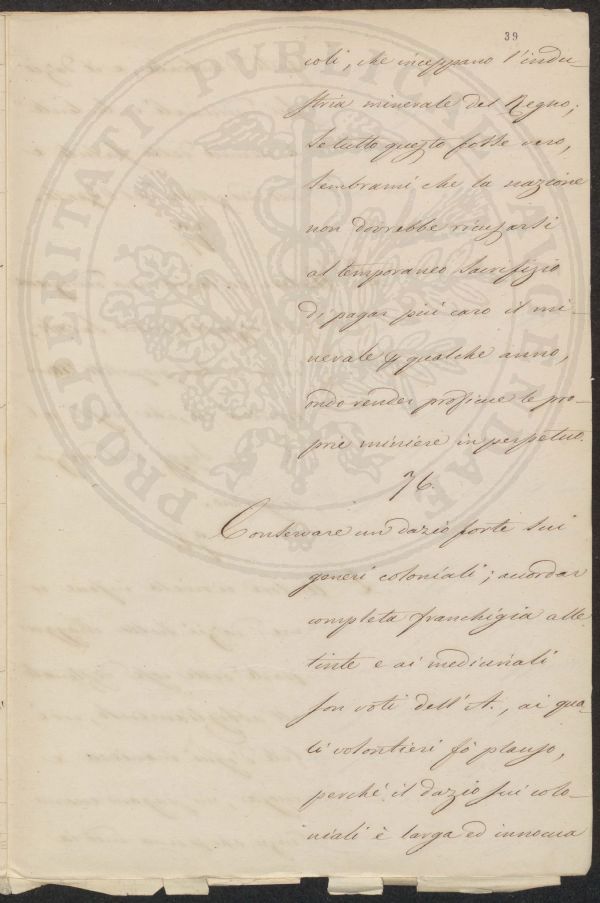 39
coli, che inceppano l'indu-
stria minerale del Regno;
se tutto questo fosse vero,
sembrami che la nazione
non dovrebbe ricusarsi
al temporaneo sacrifizio
di pagar più caro il mi-
nerale qualche anno,
onde render proficue le pro-
prie miniere in perpetuo.
76.
Conservare un dazio forte sui
generi coloniali; accordar
completa franchigia alle
tinte e ai medicinali
son voti dell'A., ai qua-
li volontieri fò plauso,
perché il dazio sui colo-
niali è larga ed innocua
PROSPERITATI PVBLICAE AVGENDAE